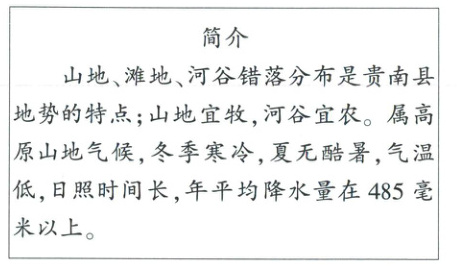 简介
山地、滩地、河谷错落分布是贵南县
地势的特点;山地宜牧,河谷宜农。属高
原山地气候,冬季寒冷,夏无酷暑,气温
低,日照时间长,年平均降水量在 485 毫
米以上。